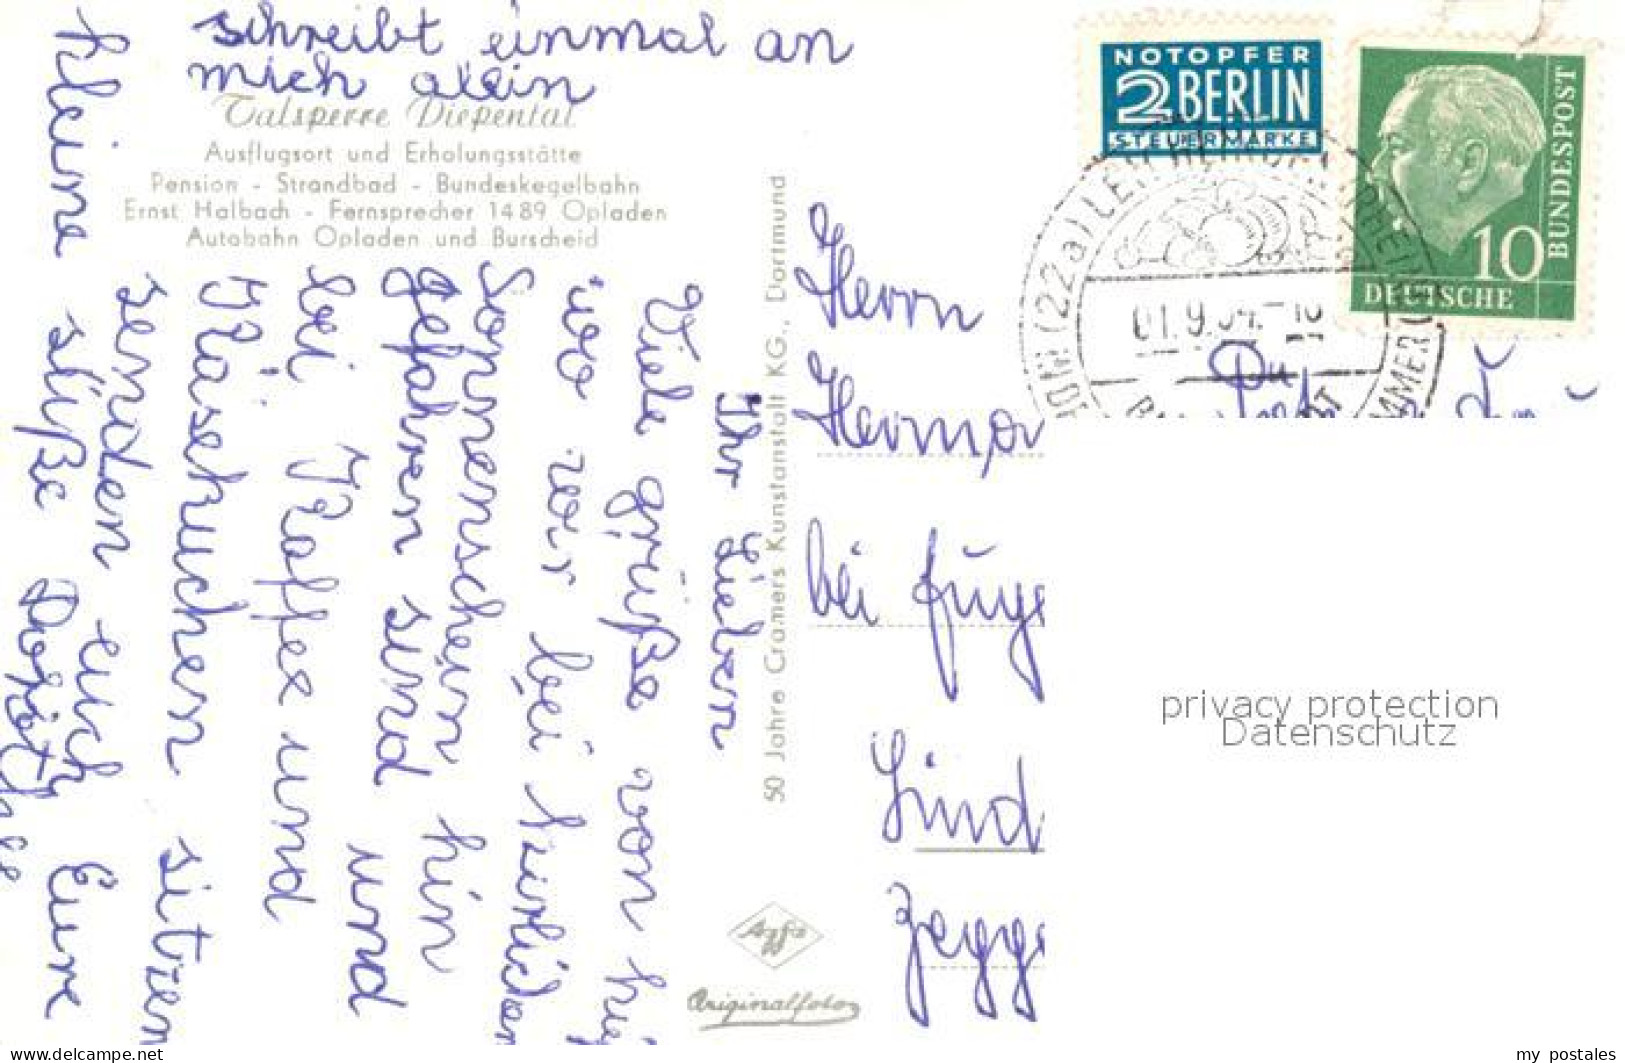 schreibt einmal an
mich allein
Talsperre Diepental
Ausflugsort und Erholungsstätte
Pension - Strandbad - Bundeskegelbahn
Ernst Halbach - Fernsprecher 1489 Opladen
Autobahn Opladen und Burscheid
Ihr Lieben
Viele grüße von hie
wo wir bei herrlichem
Sonnenschein hin
gefahren sind und
bei Kaffee und
Käsekuchen sitzen
senden euch
kleine süße Eure
50 Jahre Cramers Kunstanstalt KG., Dortmund
Agfa
Originalfoto
NOTOPFER
2 BERLIN
STEUERMARKE
DEUTSCHE
BUNDESPOST
10
(22a)
Herrn
Herman
bei
privacy protection
Datenschutz
my postales
www.delcampe.net